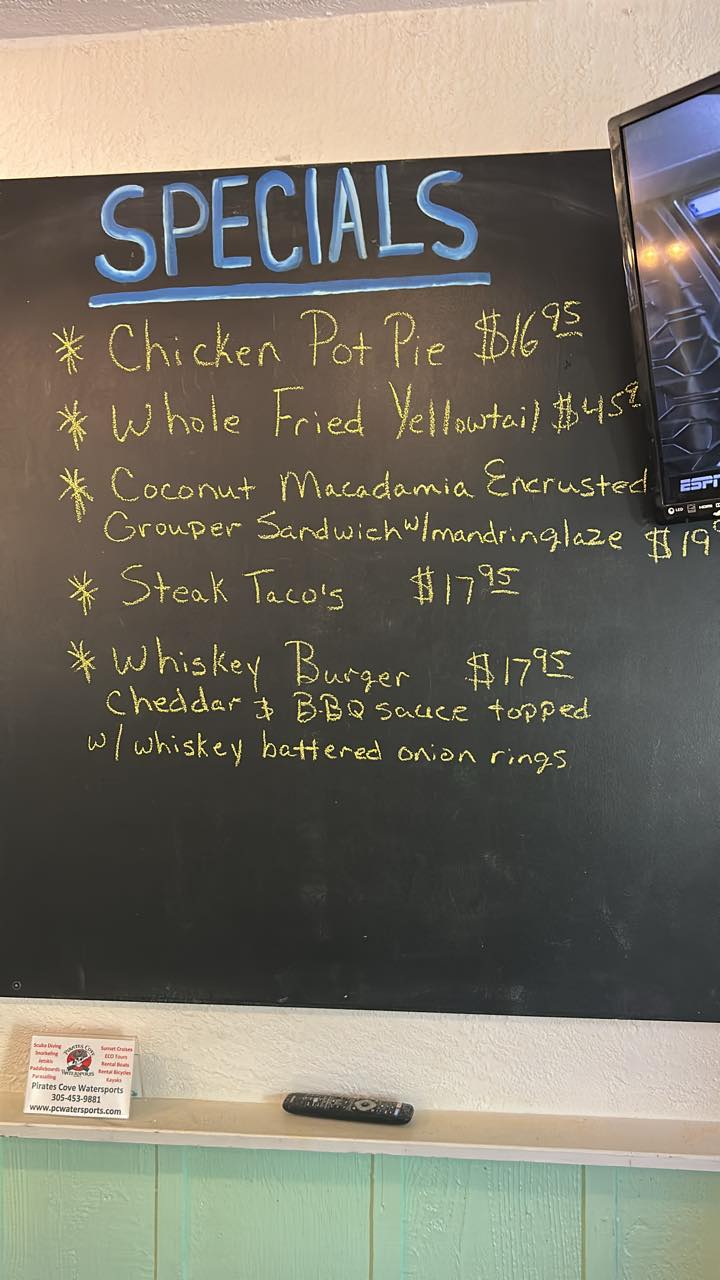 SPECIALS
* Chicken Pot Pie $16 95
* Whole Fried Yellowtail $45
* Coconut Macadamia Encrusted
Grouper Sandwich w/mandrin glaze $19
* Steak Taco's $17 95
* Whiskey Burger $17 95
Cheddar & BBQ sauce topped
w/ whiskey battered onion rings
ESPN
LED
HDMI
Scuba Diving
Snorkeling
Jetskis
Paddleboards
Parasailing
PIRATES COVE
WATERSPORTS
Sunset Cruises
ECO Tours
Rental Boats
Rental Bicycles
Kayaks
Pirates Cove Watersports
305-453-9881
www.pcwatersports.com